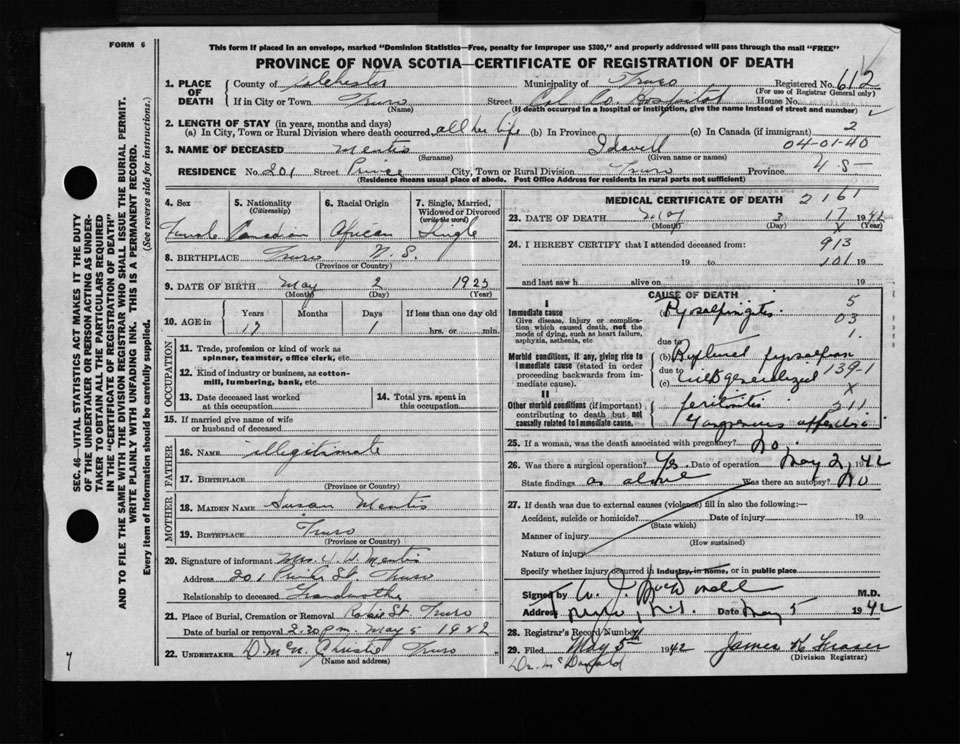 FORM 6
This form if placed in an envelope, marked "Dominion Statistics—Free, penalty for improper use $300," and properly addressed will pass through the mail "FREE"
PROVINCE OF NOVA SCOTIA—CERTIFICATE OF REGISTRATION OF DEATH
1. PLACE OF DEATH County of Colchester Municipality of Truro Registered No. 612
(For use of Registrar General only)
If in City or Town Truro Street Col. Co. Hospital House No.
(If death occurred in a hospital or institution, give the name instead of street and number)
2. LENGTH OF STAY (in years, months and days)
(a) In City, Town or Rural Division where death occurred, all her life (b) In Province (c) In Canada (if immigrant) 2
3. NAME OF DECEASED Mentis 04-01-40
(Surname) (Given name or names)
RESIDENCE No. 201 Street Prince City, Town or Rural Division Truro Province N S
(Residence means usual place of abode. Post Office Address for residents in rural parts not sufficient)
4. Sex 5. Nationality (Citizenship) 6. Racial Origin 7. Single, Married, Widowed or Divorced (write the word)
Female Canadian African Single
8. BIRTHPLACE Truro N. S.
(Province or Country)
9. DATE OF BIRTH May 2 1925
(Month) (Day) (Year)
10. AGE in Years Months Days If less than one day old
17 1 hrs. or min.
OCCUPATION
11. Trade, profession or kind of work as spinner, teamster, office clerk, etc.
12. Kind of industry or business, as cotton-mill, lumbering, bank, etc.
13. Date deceased last worked at this occupation
14. Total yrs. spent in this occupation
15. If married give name of wife or husband of deceased
FATHER
16. NAME illigitimate
17. BIRTHPLACE
(Province or Country)
MOTHER
18. MAIDEN NAME Susan Mentis
19. BIRTHPLACE Truro
(Province or Country)
20. Signature of informant Mrs. Mentis
Address 201 Prince St. Truro
Relationship to deceased Grandmother
21. Place of Burial, Cremation or Removal Robie St. Truro
Date of burial or removal 2.30 P.m. May 5 1942
22. UNDERTAKER D. McN. Christie Truro
(Name and address)
MEDICAL CERTIFICATE OF DEATH 2161
23. DATE OF DEATH May 3 17 1942
(Month) (Day) X (Year)
24. I HEREBY CERTIFY that I attended deceased from: 913
19 to 101 19
and last saw h alive on 19
CAUSE OF DEATH
I
Immediate cause
Give disease, injury or complication which caused death, not the mode of dying, such as heart failure, asphyxia, asthenia, etc
(a) Pyosalpingitis 5
03
due to 1.
Morbid conditions, if any, giving rise to immediate cause (stated in order proceeding backwards from immediate cause).
(b) Ruptured pyosalpinx
due to 139-1
(c) with generalized X
II
Other morbid conditions (if important) contributing to death but not causally related to immediate cause.
peritonitis 211
Gangrenous appendix
25. If a woman, was the death associated with pregnancy? No.
26. Was there a surgical operation? Yes. Date of operation May 2, 1942
State findings as above Was there an autopsy? No
27. If death was due to external causes (violence) fill in also the following:
Accident, suicide or homicide? Date of injury 19
(State which)
Manner of injury
(How sustained)
Nature of injury
Specify whether injury occurred in industry, in home, or in public place
Signed by M.D.
Address Truro, N.S. Date May 5 1942
28. Registrar's Record Number
29. Filed May 5th 1942 James K Fraser
(Division Registrar)
Dr. McDonald
SEC. 46—VITAL STATISTICS ACT MAKES IT THE DUTY OF THE UNDERTAKER OR PERSON ACTING AS UNDERTAKER TO OBTAIN ALL THE PARTICULARS REQUIRED IN THE "CERTIFICATE OF REGISTRATION OF DEATH" AND TO FILE THE SAME WITH THE DIVISION REGISTRAR WHO SHALL ISSUE THE BURIAL PERMIT.
WRITE PLAINLY WITH UNFADING INK. THIS IS A PERMANENT RECORD.
Every item of Information should be carefully supplied. (See reverse side for instructions.)